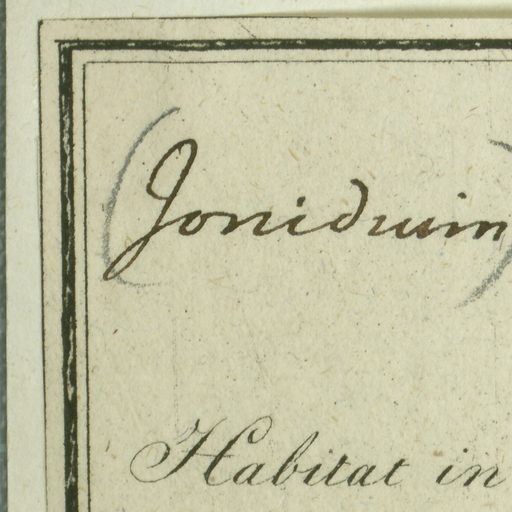 (Jonidium)
Habitat in